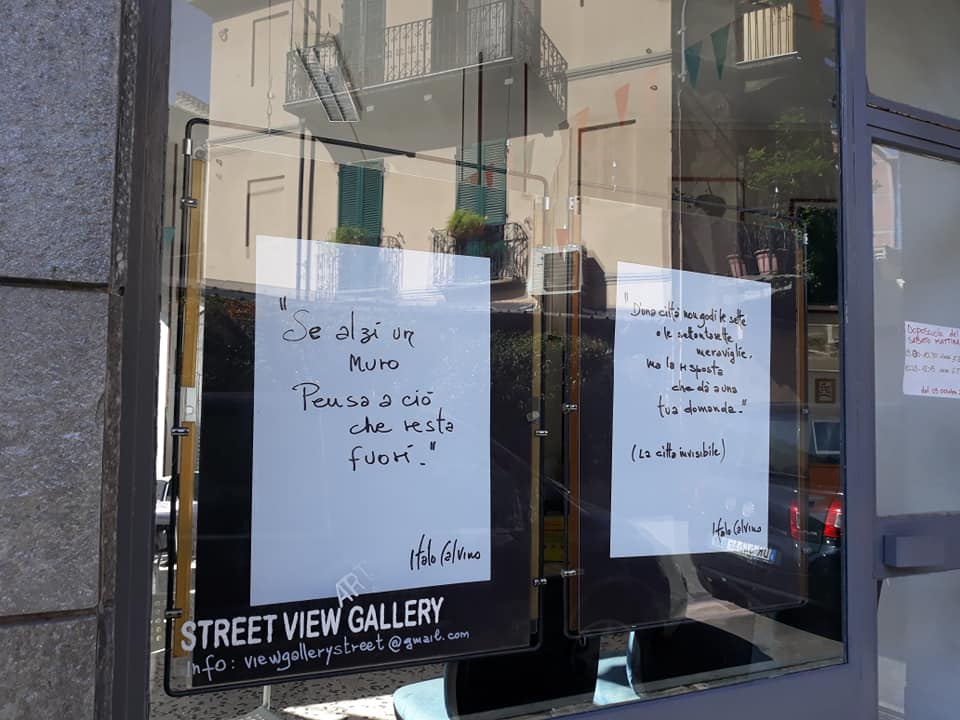 "Se alzi un
Muro
Pensa a ciò
che resta
fuori."
Italo Calvino
"D'una città non godi le sette
o le settantasette
meraviglie,
ma la risposta
che dà a una
tua domanda."
(La città invisibile)
Italo Calvino
ART
STREET VIEW GALLERY
info: viewgallerystreet@gmail.com
SABATO MATTINA